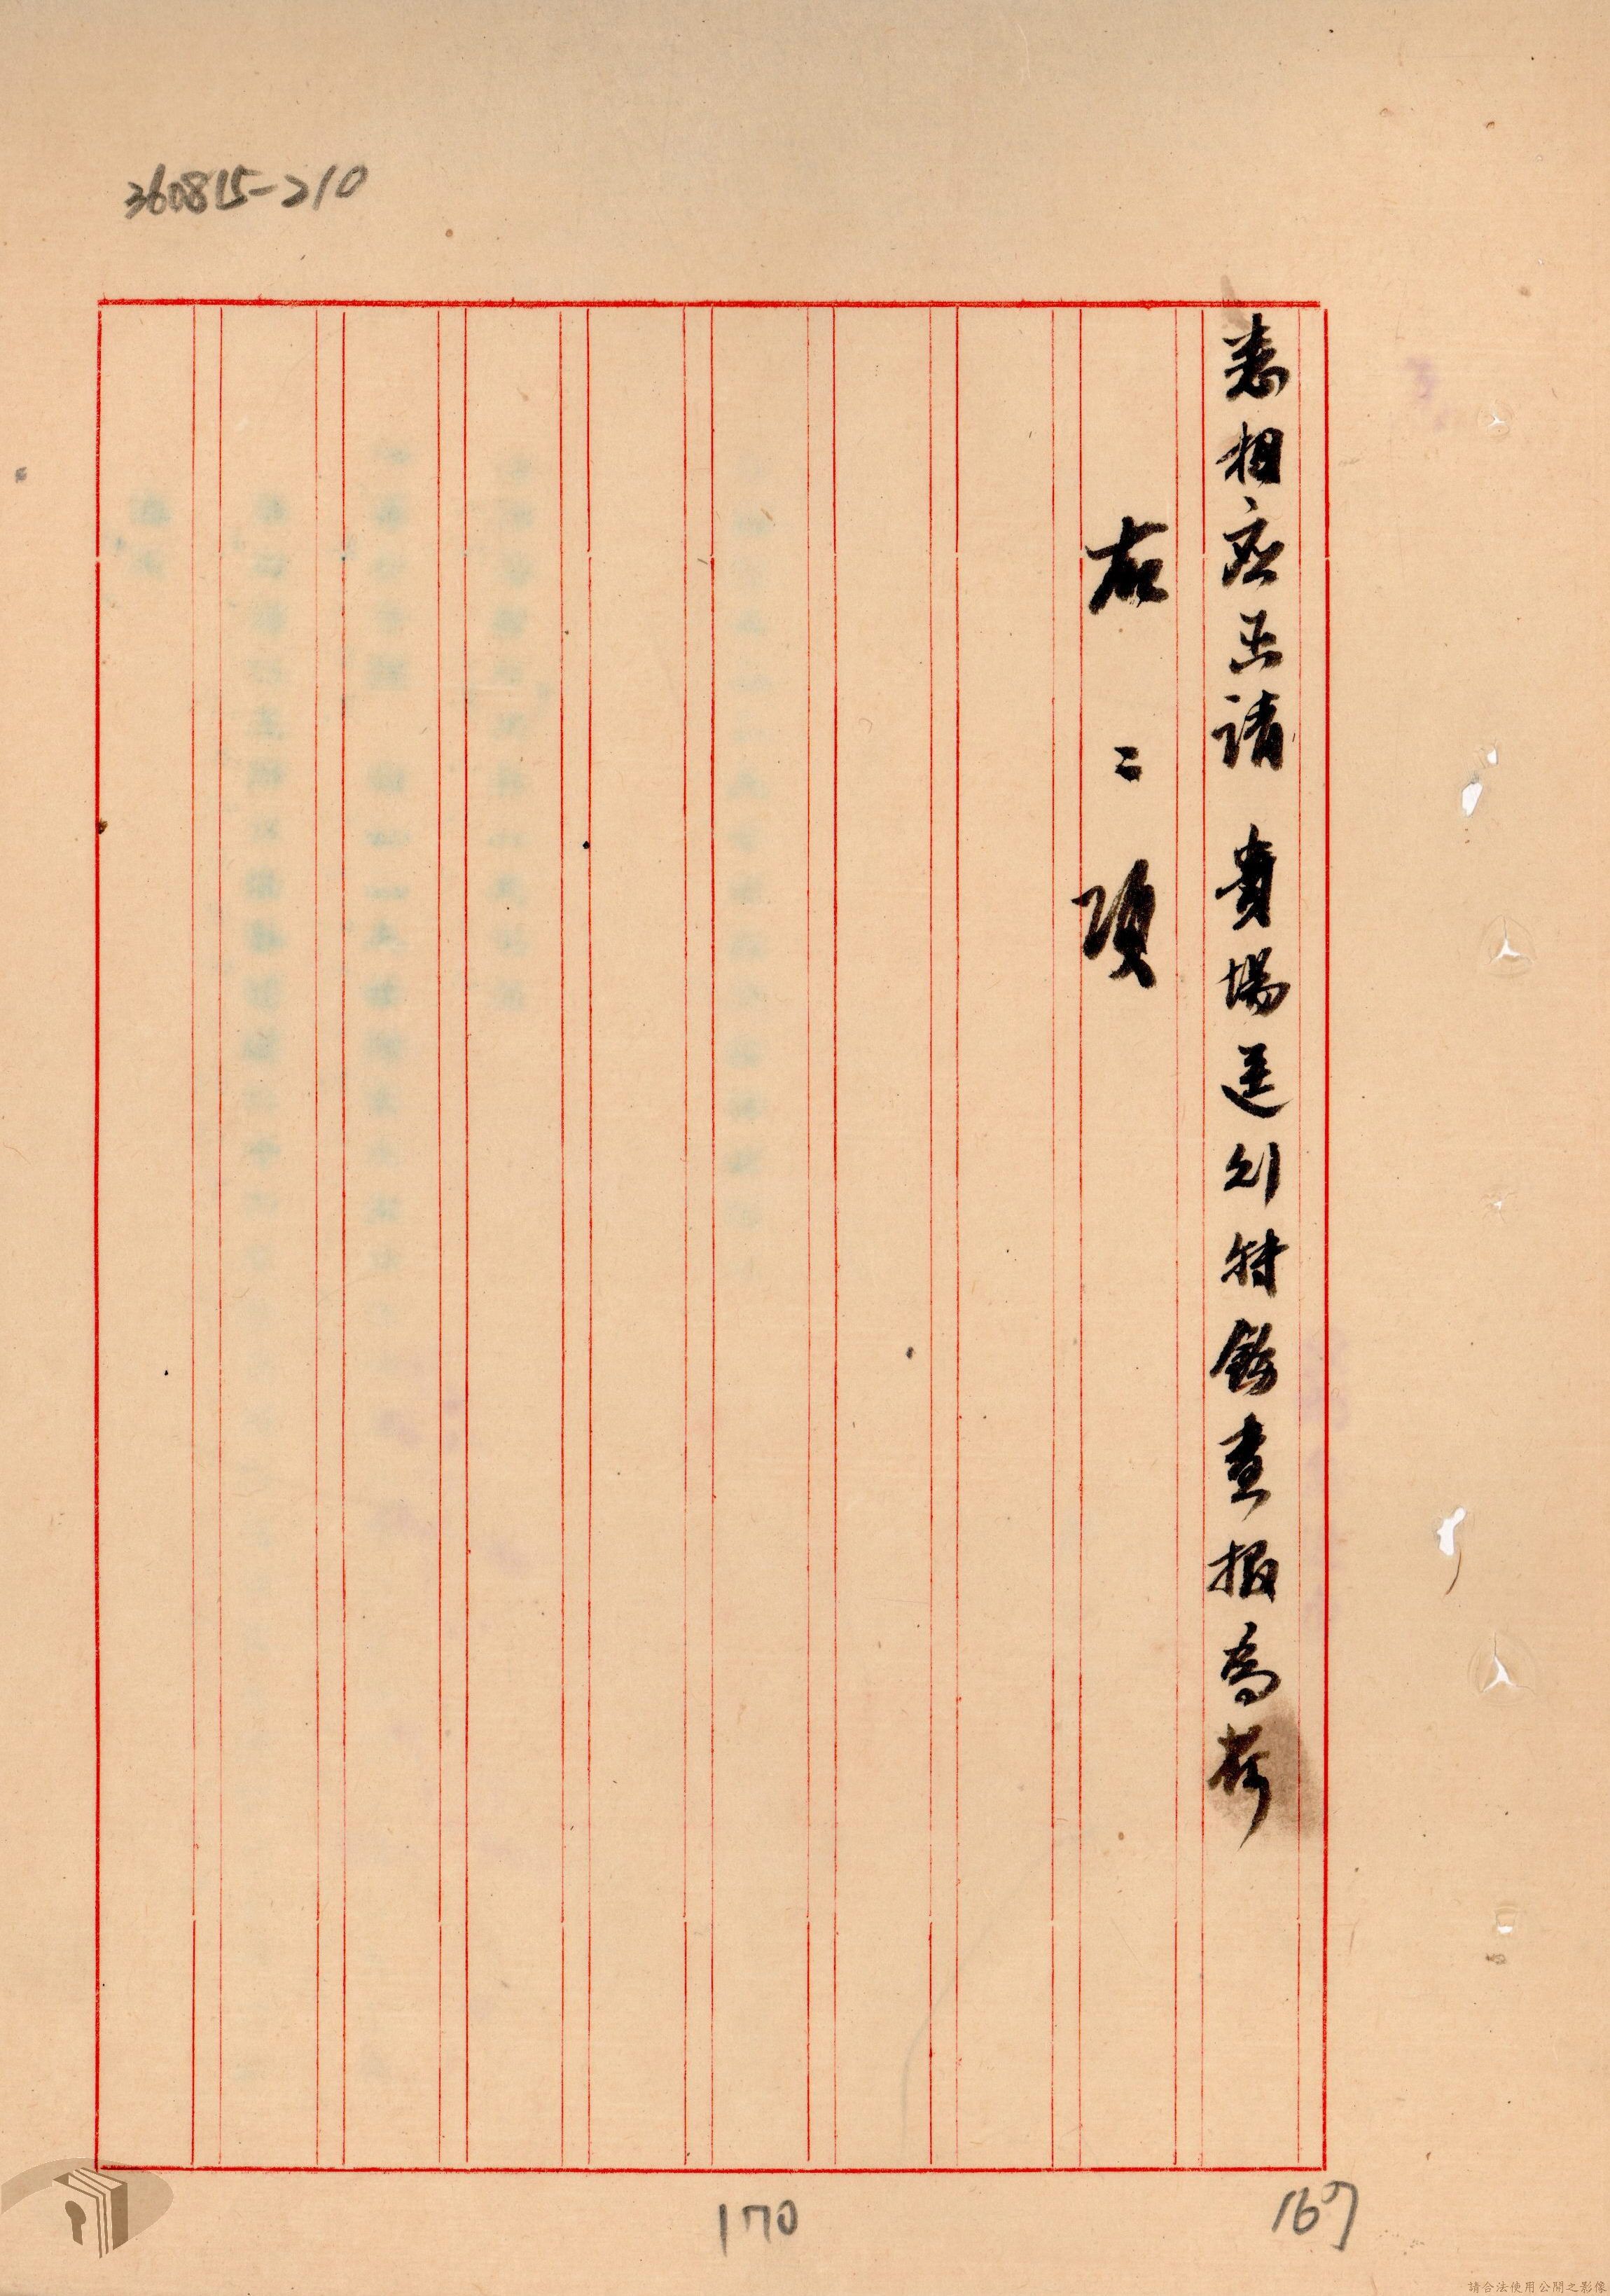 360815-210
悉相应函請 貴場逕特飭查報為荷
右二項
170
請合法使用公開之影像